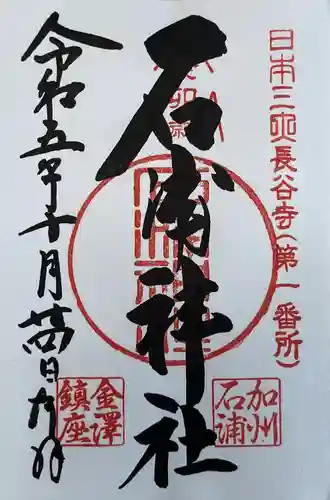 日本三大長谷寺(第一番所)
石浦神社
令和五年十月廿日大拝
加州
石浦
金澤
鎮座